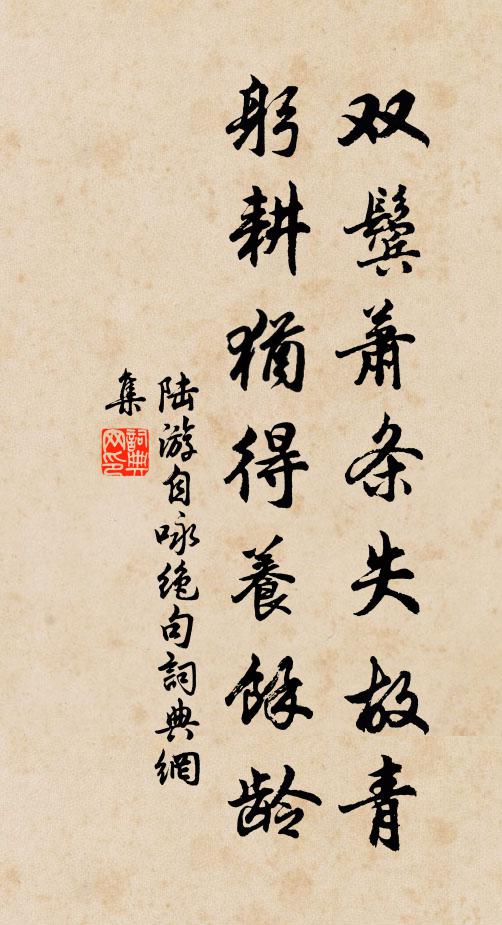 双鬓萧条失故青
躬耕犹得養餘龄
陆游自咏绝句詞典網
集
詞典
网印